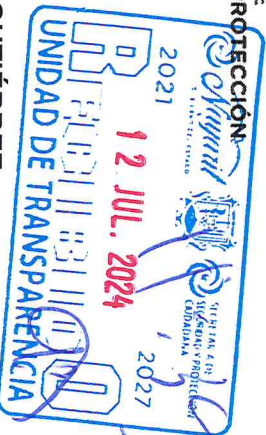 ROTECCIÓN
2021
Nayarit
SECRETARÍA DE
SEGURIDAD Y PROTECCIÓN
CIUDADANA
2027
12 JUL. 2024
RECIBIDO
UNIDAD DE TRANSPARENCIA